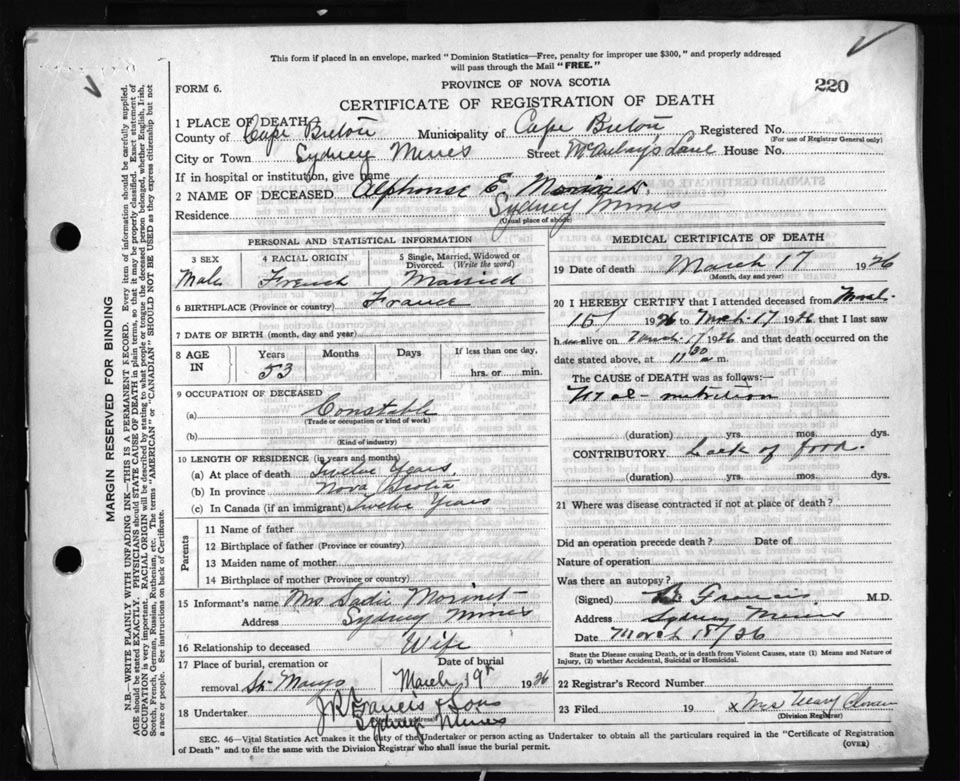 This form if placed in an envelope, marked "Dominion Statistics—Free, penalty for improper use $300," and properly addressed
will pass through the Mail "FREE."
FORM 6.
PROVINCE OF NOVA SCOTIA
220
CERTIFICATE OF REGISTRATION OF DEATH
1 PLACE OF DEATH
County of Cape Breton Municipality of Cape Breton Registered No.
(For use of Registrar General only)
City or Town Sydney Mines Street Lane House No.
If in hospital or institution, give name
2 NAME OF DECEASED Alphonse E.
Residence Sydney Mines
(Usual place of abode)
PERSONAL AND STATISTICAL INFORMATION
3 SEX
Male
4 RACIAL ORIGIN
French
5 Single, Married, Widowed or
Divorced. (Write the word)
Married
6 BIRTHPLACE (Province or country) France
7 DATE OF BIRTH (month, day and year)
8 AGE
IN
Years Months Days
53
If less than one day,
hrs. or min.
9 OCCUPATION OF DECEASED
(a) Constable
(Trade or occupation or kind of work)
(b)
(Kind of industry)
10 LENGTH OF RESIDENCE (in years and months)
(a) At place of death Twelve Years
(b) In province Nova Scotia
(c) In Canada (if an immigrant) Twelve Years
Parents
11 Name of father
12 Birthplace of father (Province or country)
13 Maiden name of mother
14 Birthplace of mother (Province or country)
15 Informant's name Mrs Sadie Morinet
Address Sydney Mines
16 Relationship to deceased Wife
17 Place of burial, cremation or
removal St. Marys
Date of burial
March 19th 1926
18 Undertaker J R Francis & Sons
Sydney Mines
MEDICAL CERTIFICATE OF DEATH
19 Date of death March 17 1926
(Month, day and year)
20 I HEREBY CERTIFY that I attended deceased from March
15 1926 to March 17 1926 that I last saw
him alive on March 17 1926 and that death occurred on the
date stated above, at 11 30 m.
The CAUSE OF DEATH was as follows:—
Mal-nutrition
(duration) yrs. mos. dys.
CONTRIBUTORY. Lack of food.
(duration) yrs. mos. dys.
21 Where was disease contracted if not at place of death?
Did an operation precede death? Date of
Nature of operation
Was there an autopsy?
(Signed) M.D.
Address Sydney Mines
Date March 18/26
State the Disease causing Death, or in death from Violent Causes, state (1) Means and Nature of
Injury, (2) whether Accidental, Suicidal or Homicidal.
22 Registrar's Record Number
23 Filed 19 x Mrs Mary
(Division Registrar)
SEC. 46—Vital Statistics Act makes it the duty of the Undertaker or person acting as Undertaker to obtain all the particulars required in the "Certificate of Registration
of Death" and to file the same with the Division Registrar who shall issue the burial permit.
(OVER)
MARGIN RESERVED FOR BINDING
N.B.—WRITE PLAINLY WITH UNFADING INK—THIS IS A PERMANENT RECORD. Every item of information should be carefully supplied.
AGE should be stated EXACTLY. PHYSICIANS should STATE CAUSE OF DEATH in plain terms, so that it may be properly classified. Exact statement of
OCCUPATION is very important. RACIAL ORIGIN will be described by stating to what people or tongue the deceased person belonged, whether English, Irish,
Scotch, French, German, Russian, Ruthenian, etc. The terms "AMERICAN" or "CANADIAN" SHOULD NOT BE USED as they express citizenship but not
a race or people. See instructions on back of Certificate.